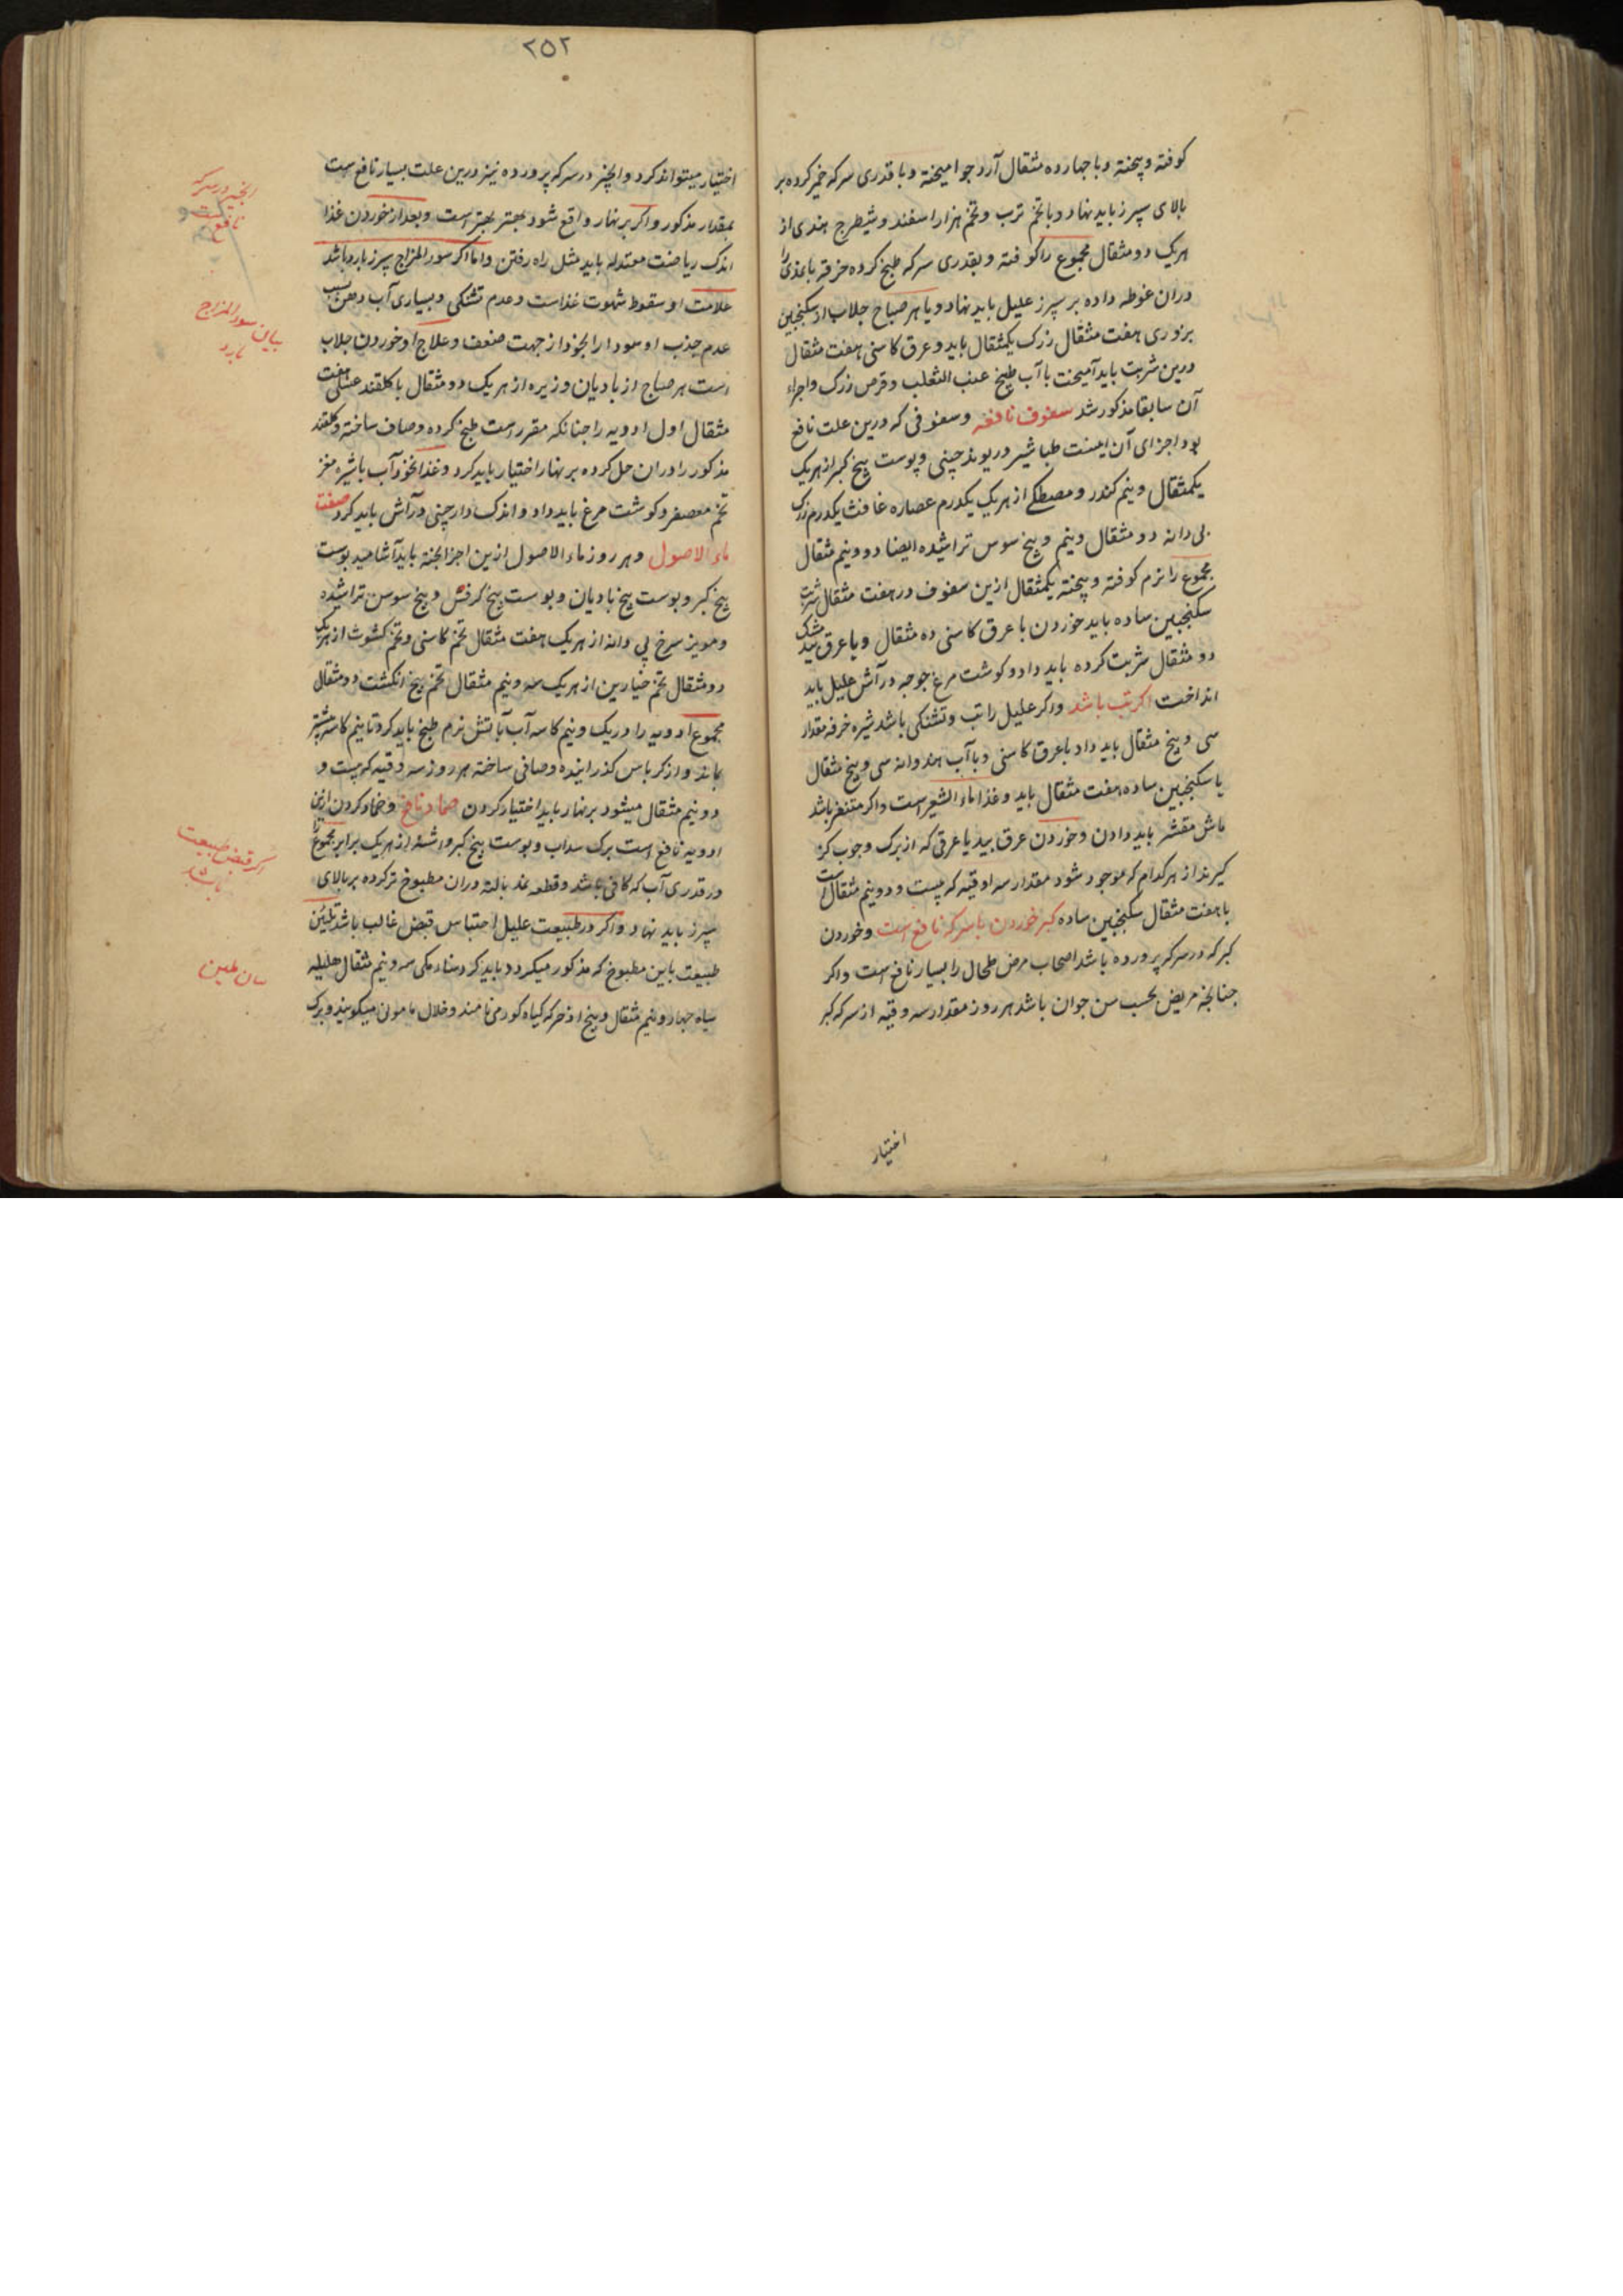 کوفته و پیخته و با چهارده مثقال آرد جو آمیخته و با قدری سرکه خمیر کرده بر
بالای سپرز باید نهاد و با تخم ترب و تخم هزار اسفند و شیطرج هندی از
هریک دو مثقال مجموع را کوفته و بقدری سرکه طبخ کرده خرقه یا نمدی را
دران غوطه داده بر سپرز علیل باید نهاد و یا هر صباح جلاب از سکنجبین
بزوری هفت مثقال زرک یکمثقال باید و عرق کاسنی هفت مثقال
درین شربت باید آمیخت با آب طبیخ عنب الثعلب و قرص زرک و اجزاء
آن سابقا مذکور شد سفوف نافعه و سفوفی که درین علت نافع
بود اجزای آن اینست طباشیر و ریوند چینی و پوست بیخ کبر از هریک
یکمثقال و نیم کندر و مصطکی از هریک یکدرم عصاره غافث یکدرم زرک
بی دانه دو مثقال و نیم و بیخ سوس تراشیده ایضا دو و نیم مثقال
مجموع را نرم کوفته و پیخته یکمثقال ازین سفوف در هفت مثقال شربت
سکنجبین ساده باید خوردن با عرق کاسنی ده مثقال و یا عرق بید مشک
دو مثقال شربت کرده باید داد و کوشت مرغ جوجه در آش علیل باید
انداخت اکر تب باشد و اکر علیل را تب و تشنکی باشد شیره خرفه مقدار
سی و پنج مثقال باید داد با عرق کاسنی و با آب هندوانه سی و پنج مثقال
یا سکنجبین ساده هفت مثقال باید و غذا ماء الشعیر است و اکر متنفر باشد
ماش مقشر باید دادن و خوردن عرق بید یا عرقی که از برک و چوب کز
کیرند از هرکدام که موجود شود مقدار سه اوقیه که بیست و دو نیم مثقال است
با هفت مثقال سکنجبین ساده کبر خوردن با سرکه نافع است و خوردن
کبر که در سرکه پرورده باشد اصحاب مرض طحال را بسیار نافع است و اکر
چنانچه مریض بحسب سن جوان باشد هر روز مقدار سه وقیه از سرکه کبر
اختیار
۲۵۲
اختیار میتواند کرد و انجیر در سرکه پرورده نیز درین علت بسیار نافع است
بمقدار مذکور و اکر بر نهار واقع شود بهتر بهتر است و بعد از خوردن غذا
اندک ریاضت معتدله باید مثل راه رفتن و اما اکر سوء المزاج سپرز بارد باشد
علامت او سقوط شهوت غذاست و عدم تشنکی و بسیاری آب دهن بسبب
عدم جذب او سودا را بخود از جهت ضعف و علاج او خوردن جلاب
است هر صباح از بادیان و زیره از هر یک دو مثقال با کلقند عسلی هفت
مثقال اول ادویه را چنانکه مقرر است طبخ کرده و صاف ساخته و کلقند
مذکور را دران حل کرده بر نهار اختیار باید کرد و غذا نخود آب با شیره مغز
تخم معصفر و کوشت مرغ باید داد و اندک دارچینی در آش باید کرد صفت
ماء الاصول و هر روز ماء الاصول ازین اجزا پخته باید آشامید پوست
بیخ کبر و پوست بیخ بادیان و پوست بیخ کرفس و بیخ سوسن تراشیده
و مویز سرخ بی دانه از هر یک هفت مثقال تخم کاسنی و تخم کشوث از هریک
دو مثقال تخم خیارین از هریک سه و نیم مثقال تخم پنج انکشت دو مثقال
مجموع ادویه را در یک و نیم کاسه آب بآتش نرم طبخ باید کرد تا نیم کاسه بیشتر
بماند و از کرباس کذرانیده و صافی ساخته هر روز سه وقیه که بیست و
دو نیم مثقال میشود بر نهار باید اختیار کردن ضماد نافع و ضماد کردن ازین
ادویه نافع است برک سداب و پوست بیخ کبر و اشنه از هریک برابر مجموع را
در قدری آب که کافی باشد و قطعه نمد یا لته دران مطبوخ تر کرده بر بالای
سپرز باید نهاد و اکر در طبیعت علیل احتباس قبض غالب باشد تلیین
طبیعت باین مطبوخ که مذکور میکردد باید کرد سناء مکی سه و نیم مثقال هلیله
سیاه چهار و نیم مثقال و بیخ اذخر که کیاه کور می نامند و خلال مامونی میکویند و برک
انجیر در سرکه
نافع است
بیان سوء المزاج
بارد
اکر قبض طبیعت
باشد
بیان ملین